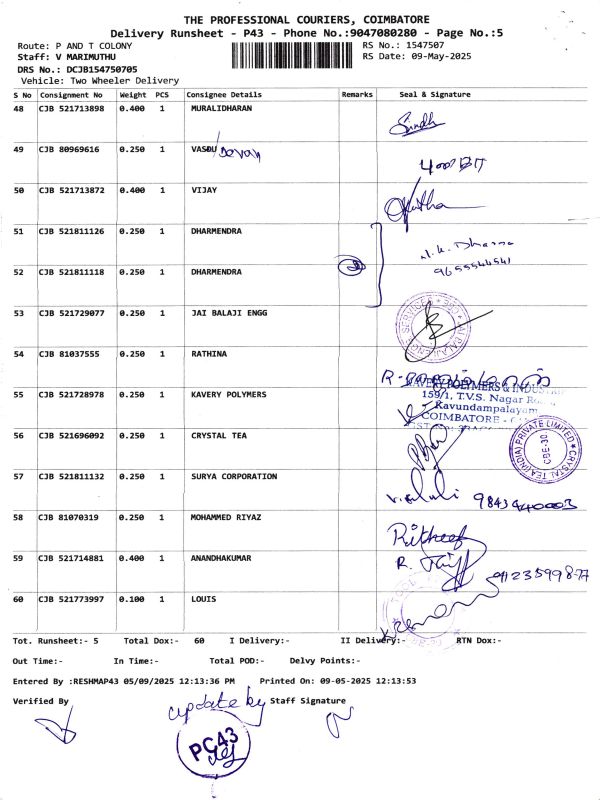 THE PROFESSIONAL COURIERS, COIMBATORE
Delivery Runsheet - P43 - Phone No.:9047080280 - Page No.:5
Route: P AND T COLONY
RS No.: 1547507
Staff: V MARIMUTHU
RS Date: 09-May-2025
DRS No.: DCJB154750705
Vehicle: Two Wheeler Delivery
S No Consignment No Weight PCS Consignee Details Remarks Seal & Signature
48 CJB 521713898 0.400 1 MURALIDHARAN
Sindh
49 CJB 80969616 0.250 1 VASDU/Devan
50 CJB 521713872 0.400 1 VIJAY
51 CJB 521811126 0.250 1 DHARMENDRA
52 CJB 521811118 0.250 1 DHARMENDRA
2
9655544541
53 CJB 521729077 0.250 1 JAI BALAJI ENGG
54 CJB 81037555 0.250 1 RATHINA
55 CJB 521728978 0.250 1 KAVERY POLYMERS
KAVERY POLYMERS &
159/1, T.V.S. Nagar
Kavundampalayam
COIMBATORE -
56 CJB 521696092 0.250 1 CRYSTAL TEA
CRYSTAL TEA (INDIA) PRIVATE LIMITED
CBE-30
57 CJB 521811132 0.250 1 SURYA CORPORATION
9843940003
58 CJB 81070319 0.250 1 MOHAMMED RIYAZ
59 CJB 521714881 0.400 1 ANANDHAKUMAR
60 CJB 521773997 0.100 1 LOUIS
Tot. Runsheet:- 5 Total Dox:- 60 I Delivery:- II Delivery:- RTN Dox:-
Out Time:- In Time:- Total POD:- Delvy Points:-
Entered By :RESHMAP43 05/09/2025 12:13:36 PM Printed On: 09-05-2025 12:13:53
Verified By
update by
Staff Signature
PC43